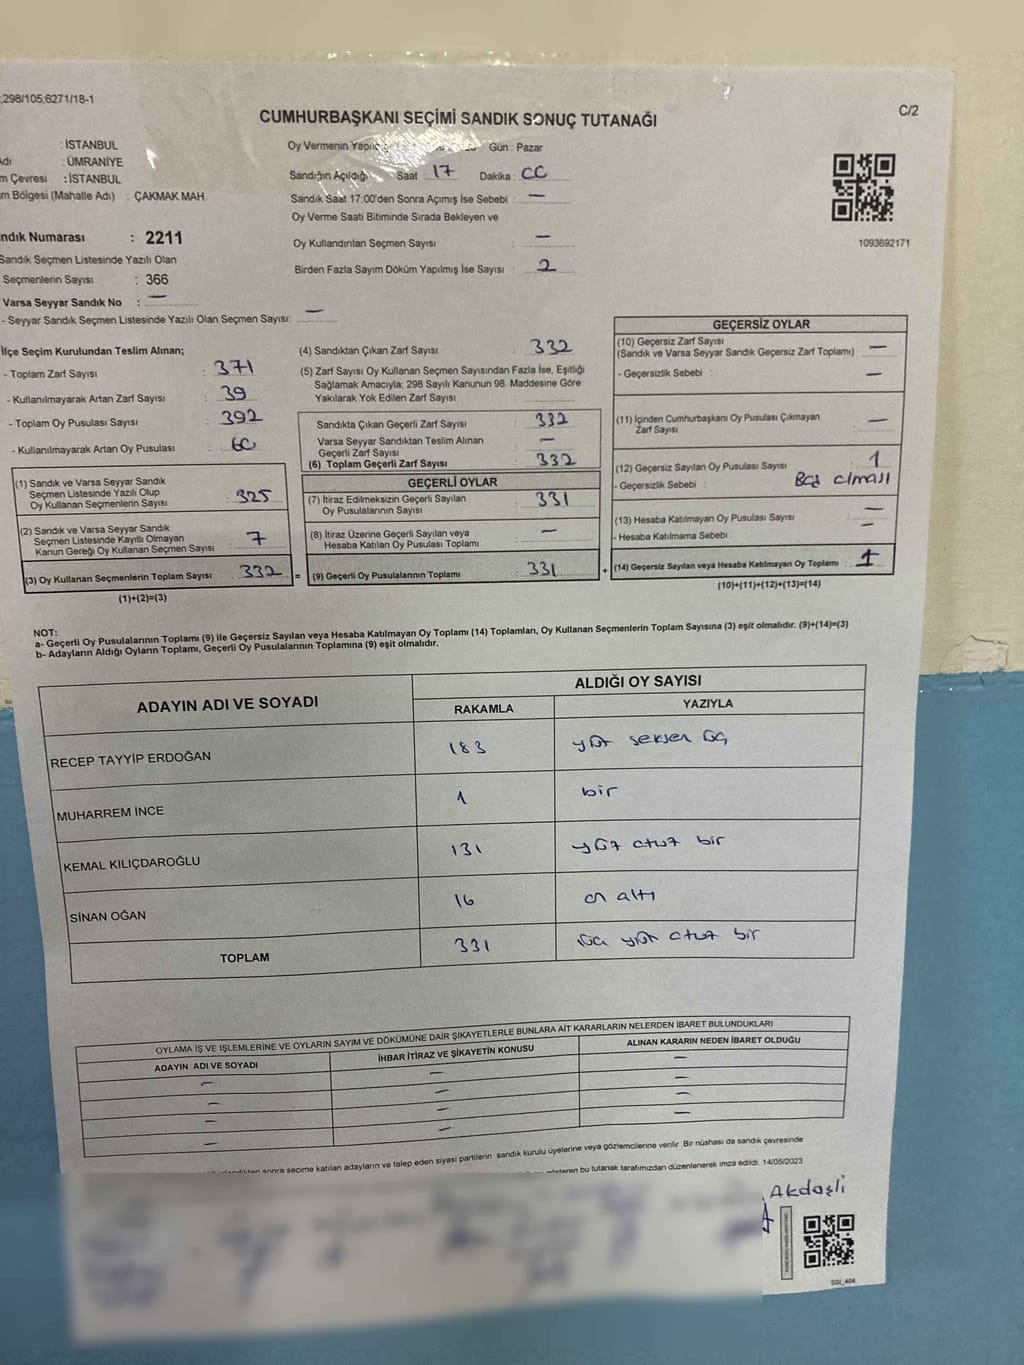 ;298/105,6271/18-1
C/2
CUMHURBAŞKANI SEÇİMİ SANDIK SONUÇ TUTANAĞI
: İSTANBUL
: ÜMRANİYE
m Çevresi : İSTANBUL
m Bölgesi (Mahalle Adı) : ÇAKMAK MAH.
Oy Vermenin Gün : Pazar
Sandığın Açıldığı Saat 17 Dakika : 00
Sandık Saat 17:00'den Sonra Açımış İse Sebebi : —
Oy Verme Saati Bitiminde Sırada Bekleyen ve
Oy Kullandırılan Seçmen Sayısı : —
Birden Fazla Sayım Döküm Yapılmış İse Sayısı : 2
1093692171
ndık Numarası : 2211
Sandık Seçmen Listesinde Yazılı Olan
Seçmenlerin Sayısı : 366
Varsa Seyyar Sandık No : —
- Seyyar Sandık Seçmen Listesinde Yazılı Olan Seçmen Sayısı: —
İlçe Seçim Kurulundan Teslim Alınan;
- Toplam Zarf Sayısı : 371
- Kullanılmayarak Artan Zarf Sayısı : 39
- Toplam Oy Pusulası Sayısı : 392
- Kullanılmayarak Artan Oy Pusulası : 60
(1) Sandık ve Varsa Seyyar Sandık
Seçmen Listesinde Yazılı Olup
Oy Kullanan Seçmenlerin Sayısı : 325
(2) Sandık ve Varsa Seyyar Sandık
Seçmen Listesinde Kayıtlı Olmayan
Kanun Gereği Oy Kullanan Seçmen Sayısı : 7
(3) Oy Kullanan Seçmenlerin Toplam Sayısı : 332 =
(1)+(2)=(3)
(4) Sandıktan Çıkan Zarf Sayısı : 332
(5) Zarf Sayısı Oy Kullanan Seçmen Sayısından Fazla İse, Eşitliği
Sağlamak Amacıyla; 298 Sayılı Kanunun 98. Maddesine Göre
Yakılarak Yok Edilen Zarf Sayısı :
Sandıkta Çıkan Geçerli Zarf Sayısı : 332
Varsa Seyyar Sandıktan Teslim Alınan
Geçerli Zarf Sayısı : —
(6) Toplam Geçerli Zarf Sayısı : 332
GEÇERLİ OYLAR
(7) İtiraz Edilmeksizin Geçerli Sayılan
Oy Pusulalarının Sayısı : 331
(8) İtiraz Üzerine Geçerli Sayılan veya
Hesaba Katılan Oy Pusulası Toplamı : —
(9) Geçerli Oy Pusulalarının Toplamı : 331 +
GEÇERSİZ OYLAR
(10) Geçersiz Zarf Sayısı
(Sandık ve Varsa Seyyar Sandık Geçersiz Zarf Toplamı) : —
- Geçersizlik Sebebi : —
(11) İçinden Cumhurbaşkanı Oy Pusulası Çıkmayan
Zarf Sayısı : —
(12) Geçersiz Sayılan Oy Pusulası Sayısı : 1
- Geçersizlik Sebebi : Boş olması
(13) Hesaba Katılmayan Oy Pusulası Sayısı : —
- Hesaba Katılmama Sebebi : —
(14) Geçersiz Sayılan veya Hesaba Katılmayan Oy Toplamı : 1
(10)+(11)+(12)+(13)=(14)
NOT:
a- Geçerli Oy Pusulalarının Toplamı (9) ile Geçersiz Sayılan veya Hesaba Katılmayan Oy Toplamı (14) Toplamları, Oy Kullanan Seçmenlerin Toplam Sayısına (3) eşit olmalıdır. (9)+(14)=(3)
b- Adayların Aldığı Oyların Toplamı, Geçerli Oy Pusulalarının Toplamına (9) eşit olmalıdır.
ADAYIN ADI VE SOYADI
ALDIĞI OY SAYISI
RAKAMLA YAZIYLA
RECEP TAYYİP ERDOĞAN 183 yüz seksen üç
MUHARREM İNCE 1 bir
KEMAL KILIÇDAROĞLU 131 yüz otuz bir
SİNAN OĞAN 16 on altı
TOPLAM 331 üç yüz otuz bir
OYLAMA İŞ VE İŞLEMLERİNE VE OYLARIN SAYIM VE DÖKÜMÜNE DAİR ŞİKAYETLERLE BUNLARA AİT KARARLARIN NELERDEN İBARET BULUNDUKLARI
ADAYIN ADI VE SOYADI İHBAR İTİRAZ VE ŞİKAYETİN KONUSU ALINAN KARARIN NEDEN İBARET OLDUĞU
— — —
— — —
— — —
— — —
sonra seçime katılan adayların ve talep eden siyasi partilerin sandık kurulu üyelerine veya gözlemcilerine verilir. Bir nüshası da sandık çevresinde
gösteren bu tutanak tarafımızdan düzenlenerek imza edildi. 14/05/2023
Akdaşlı
SSI_404